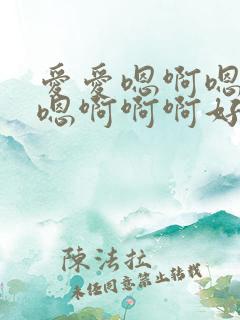 爱爱嗯啊嗯
嗯啊啊啊好
陳法拉
未經同意禁止轉載